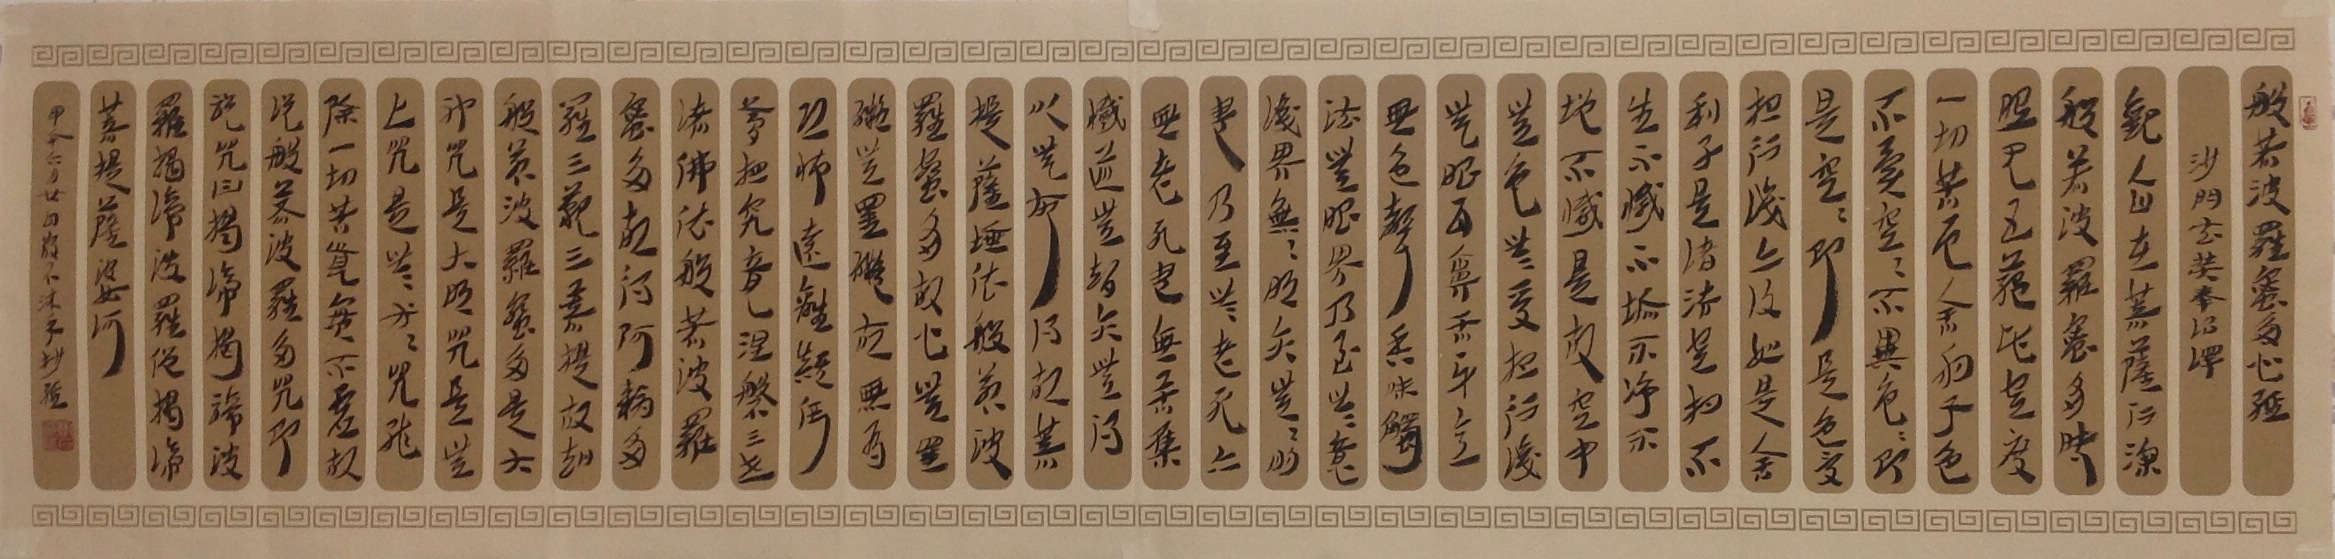 般若波羅蜜多心經
沙門玄奘奉詔譯
觀自在菩薩行深
般若波羅蜜多時
照見五蘊皆空度
一切苦厄舍利子色
不異空〻不異色〻即
是空〻即是色受
想行識亦復如是舍
利子是諸法空相不
生不滅不垢不淨不
增不減是故空中
無色無受想行識
無眼耳鼻舌身意
無色聲香味觸
法無眼界乃至無意
識界無〻明亦無〻明
盡乃至無老死亦
無老死盡無苦集
滅道無智亦無得
以無所得故菩
提薩埵依般若波
羅蜜多故心無罣
礙無罣礙故無有
恐怖遠離顛倒
夢想究竟涅槃三世
諸佛依般若波羅
蜜多故得阿耨多
羅三藐三菩提故知
般若波羅蜜多是大
神咒是大明咒是無
上咒是無等〻咒能
除一切苦真實不虛故
說般若波羅多咒即
說咒曰揭諦揭諦波
羅揭諦波羅僧揭諦
菩提薩婆訶
甲午六月廿日